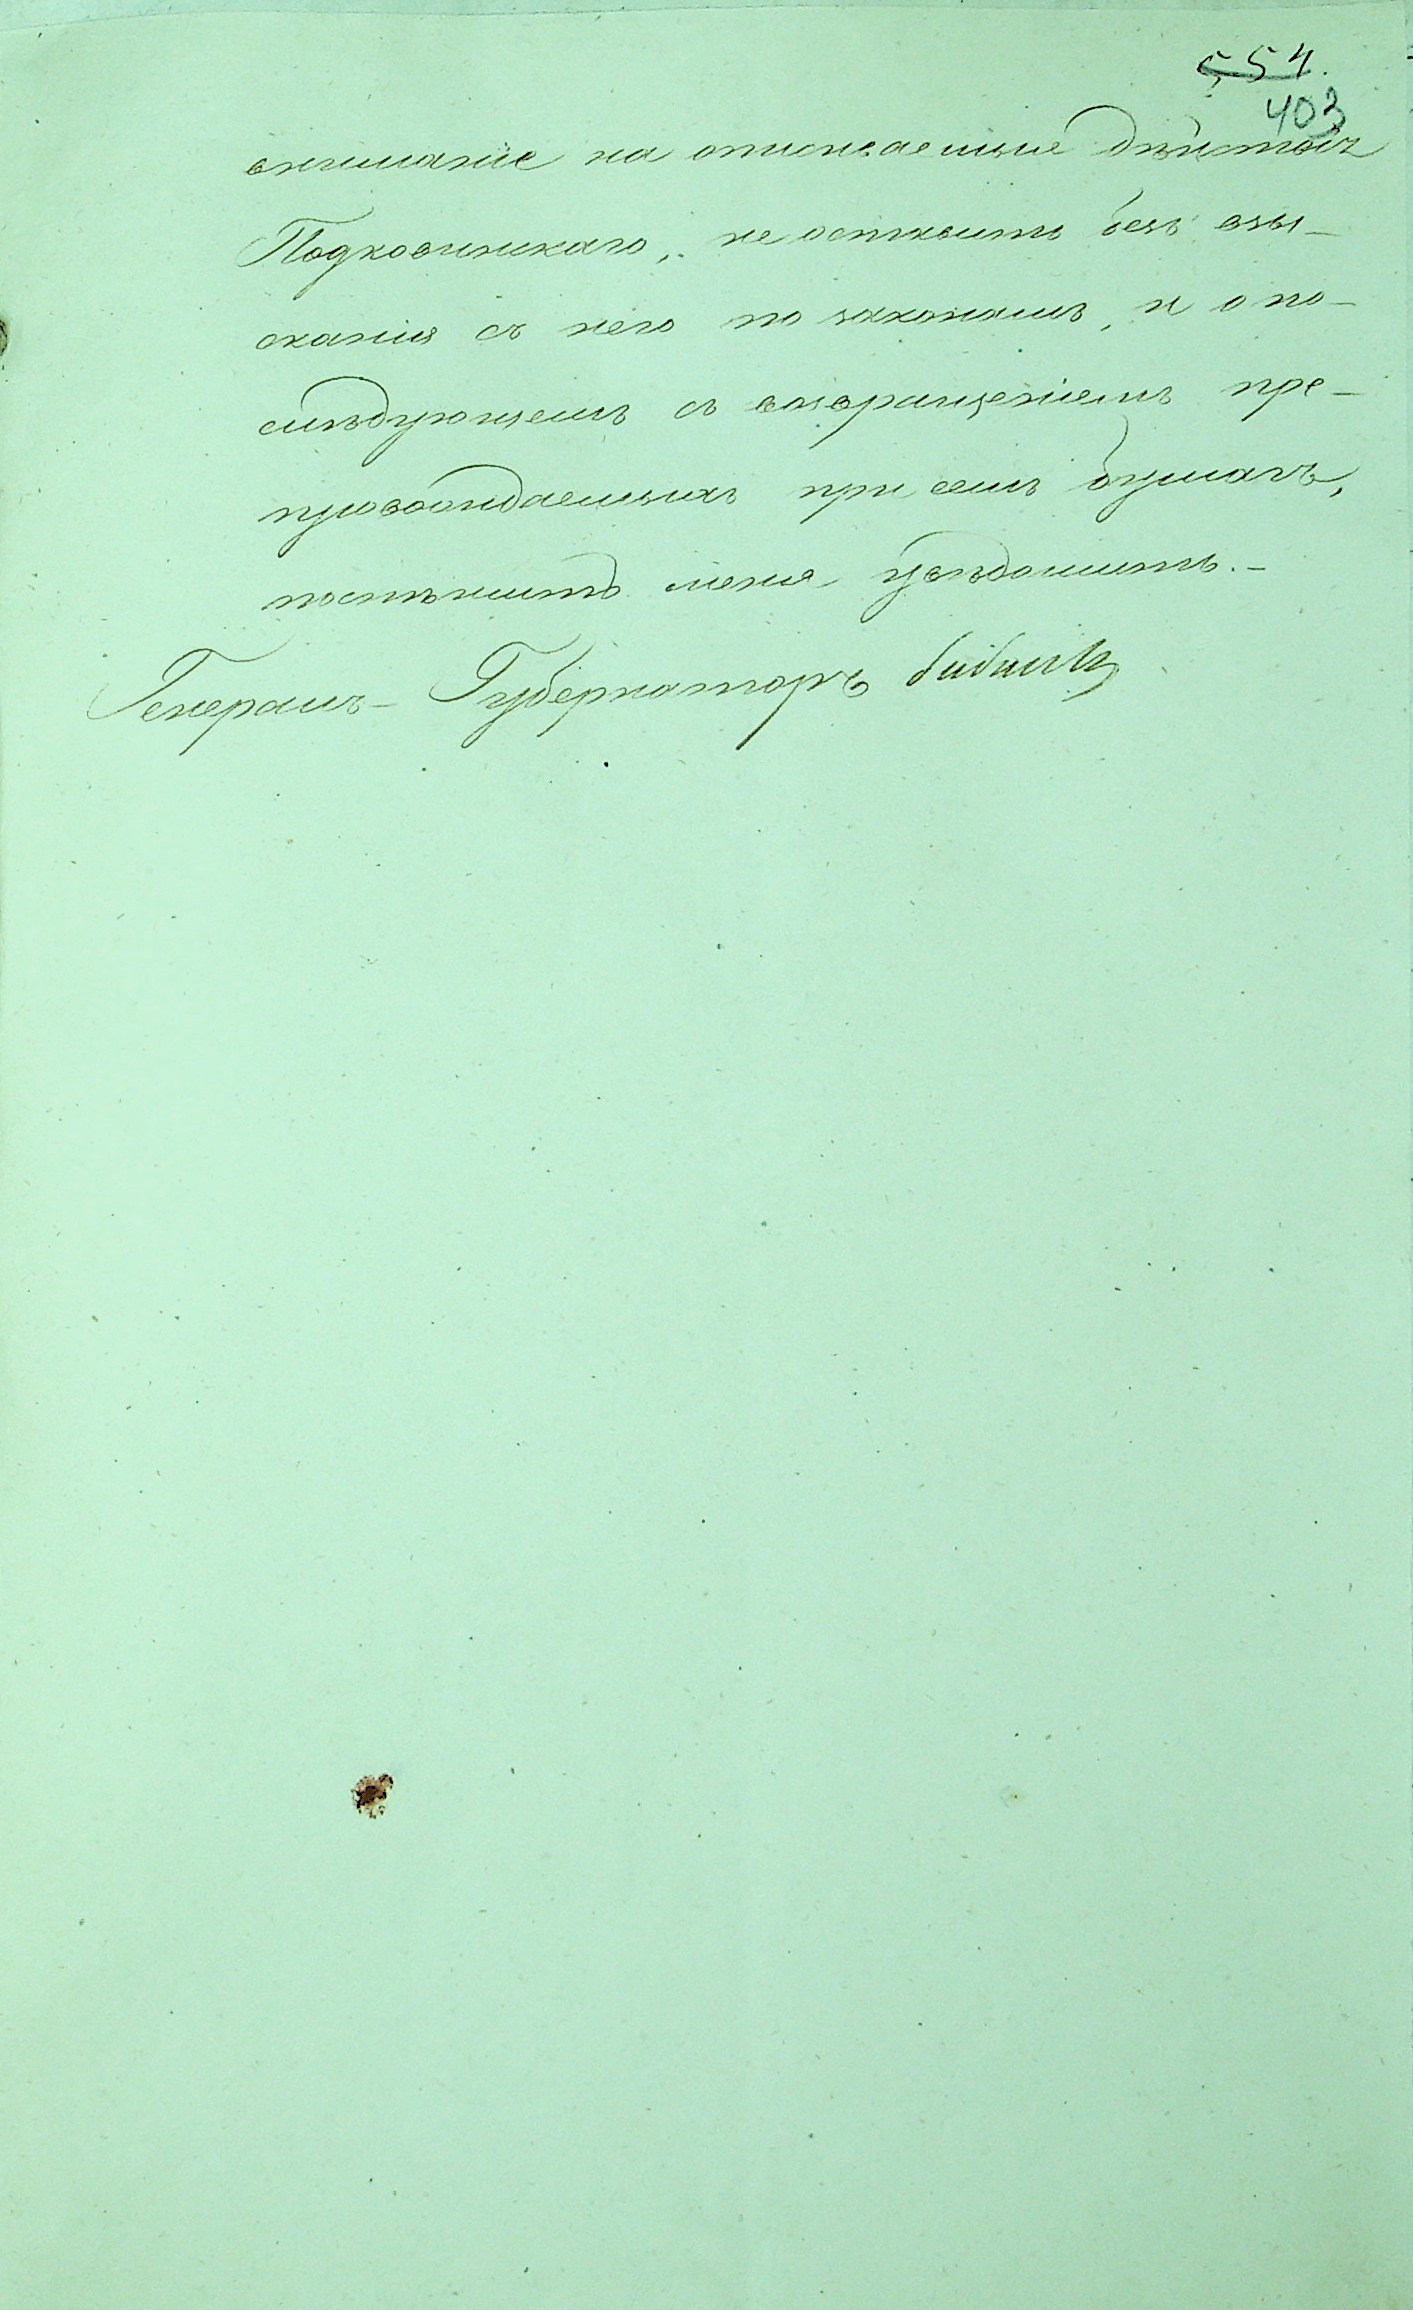 554.
403
вниманіе на описываемыя дѣйствія
Подковинскаго, не оставить безъ взы-
сканія съ него по законамъ, и о по-
слѣдующемъ съ возвращеніемъ пре-
провождаемыхъ при семъ бумагъ,
поспѣшить меня увѣдомить.-
Генералъ-Губернаторъ Бибиковъ